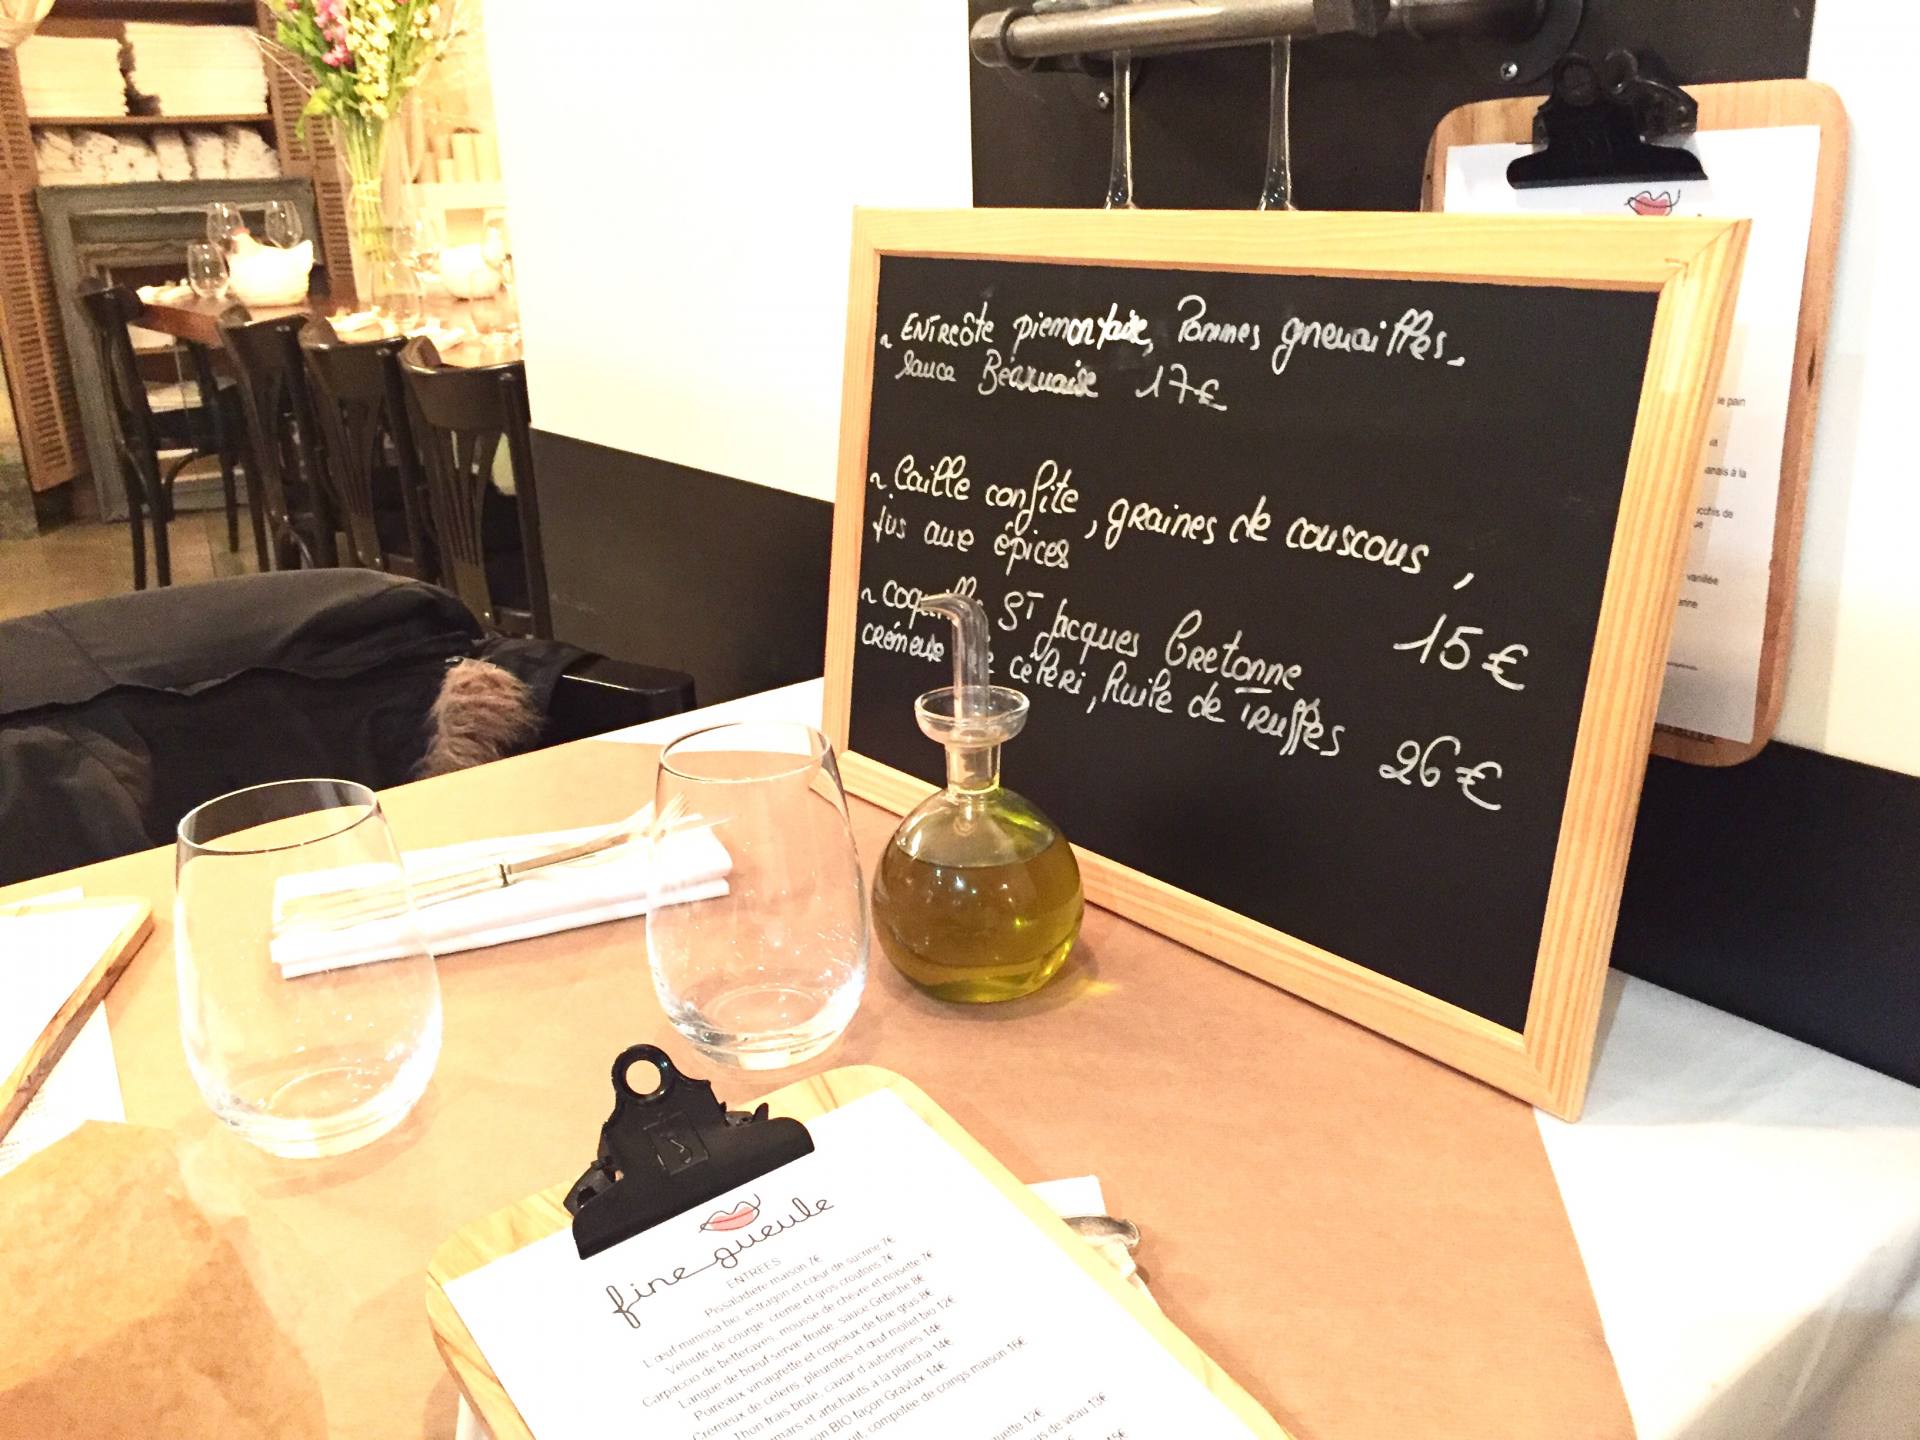 ~ ENTRECôte piemontaise, Pommes grenailles.
sauce Béarnaise 17€
~ Caille confite, graines de couscous,
jus aux épices
15€
~ Coquille ST Jacques Bretonne
crémeux de céleri, huile de Truffes 26€
le pain
anais à la
vanillée
fine gueule
ENTREES
Pissaladière maison 7€
L'œuf mimosa bio, estragon et cœur de sucrine 7€
Velouté de courge, crème et gros croutons 7€
Carpaccio de betteraves, mousse de chèvre et noisette 7€
Langue de bœuf servie froide, sauce Gribiche 8€
Poireaux vinaigrette et copeaux de foie gras 8€
Crémeux de céleris, pleurotes et œuf mollet bio 12€
Thon frais brulé, caviar d'aubergines 14€
mars et artichauts à la plancha 14€
BIO façon Gravlax 14€
compotée de coings maison 16€
12€
us de veau 13€
15€